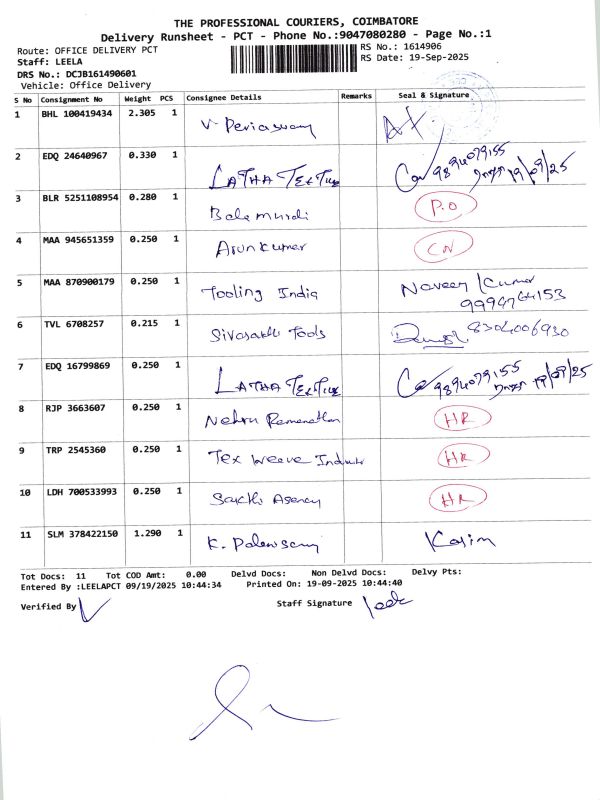 THE PROFESSIONAL COURIERS, COIMBATORE
Delivery Runsheet - PCT - Phone No.:9047080280 - Page No.:1
Route: OFFICE DELIVERY PCT
RS No.: 1614906
Staff: LEELA
RS Date: 19-Sep-2025
DRS No.: DCJB161490601
Vehicle: Office Delivery
S No Consignment No Weight PCS Consignee Details Remarks Seal & Signature
1 BHL 100419434 2.305 1 V. Periaswamy
2 EDQ 24640967 0.330 1 LATHA TEXTILE 9894079155 19/09/25
3 BLR 5251108954 0.280 1 Balamurali P.O
4 MAA 945651359 0.250 1 Arunkumar CN
5 MAA 870900179 0.250 1 Tooling India Naveen Kumar
6 TVL 6708257 0.215 1 Sivasakthi Tools 8304006930
7 EDQ 16799869 0.250 1 LATHA TEXTILE 9894079155 19/09/25
8 RJP 3663607 0.250 1 Nehru Ramanathan HR
9 TRP 2545360 0.250 1 Tex Weave HR
10 LDH 700533993 0.250 1 Sakthi Agency HR
11 SLM 378422150 1.290 1 K. Palaniswamy
Tot Docs: 11 Tot COD Amt: 0.00 Delvd Docs: Non Delvd Docs: Delvy Pts:
Entered By :LEELAPCT 09/19/2025 10:44:34 Printed On: 19-09-2025 10:44:40
Verified By
Staff Signature